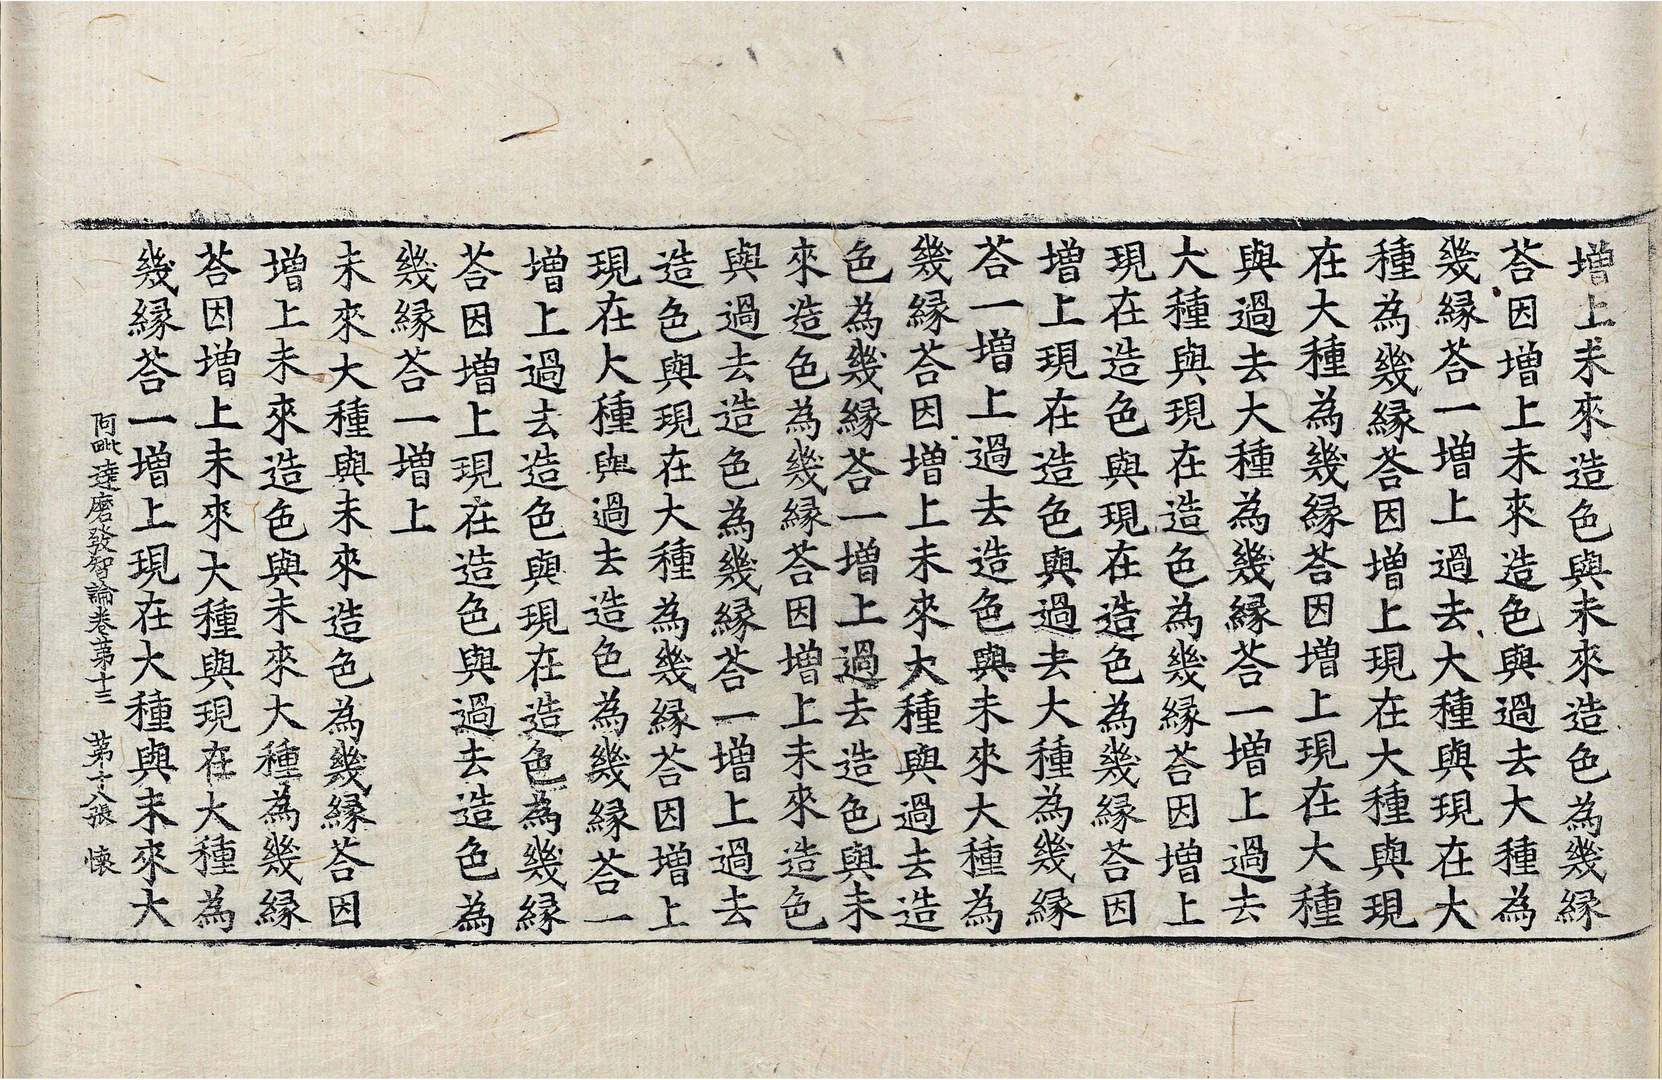 增上未來造色與未來造色為幾縁
荅因增上未來造色與過去大種為
幾縁荅一增上過去大種與現在大
種為幾縁荅因增上現在大種與現
在大種為幾縁荅因增上現在大種
與過去大種為幾縁荅一增上過去
大種與現在造色為幾縁荅因增上
現在造色與現在造色為幾縁荅因
增上現在造色與過去大種為幾縁
荅一增上過去造色與未來大種為
幾縁荅因增上未來大種與過去造
色為幾縁荅一增上過去造色與未
來造色為幾縁荅因增上未來造色
與過去造色為幾縁荅一增上過去
造色與現在大種為幾縁荅因增上
現在大種與過去造色為幾縁荅一
增上過去造色與現在造色為幾縁
荅因增上現在造色與過去造色為
幾縁荅一增上
未來大種與未來造色為幾縁荅因
增上未來造色與未來大種為幾縁
荅因增上未來大種與現在大種為
幾縁荅一增上現在大種與未來大
阿毗達磨發智論卷第十三 第十八張 懷